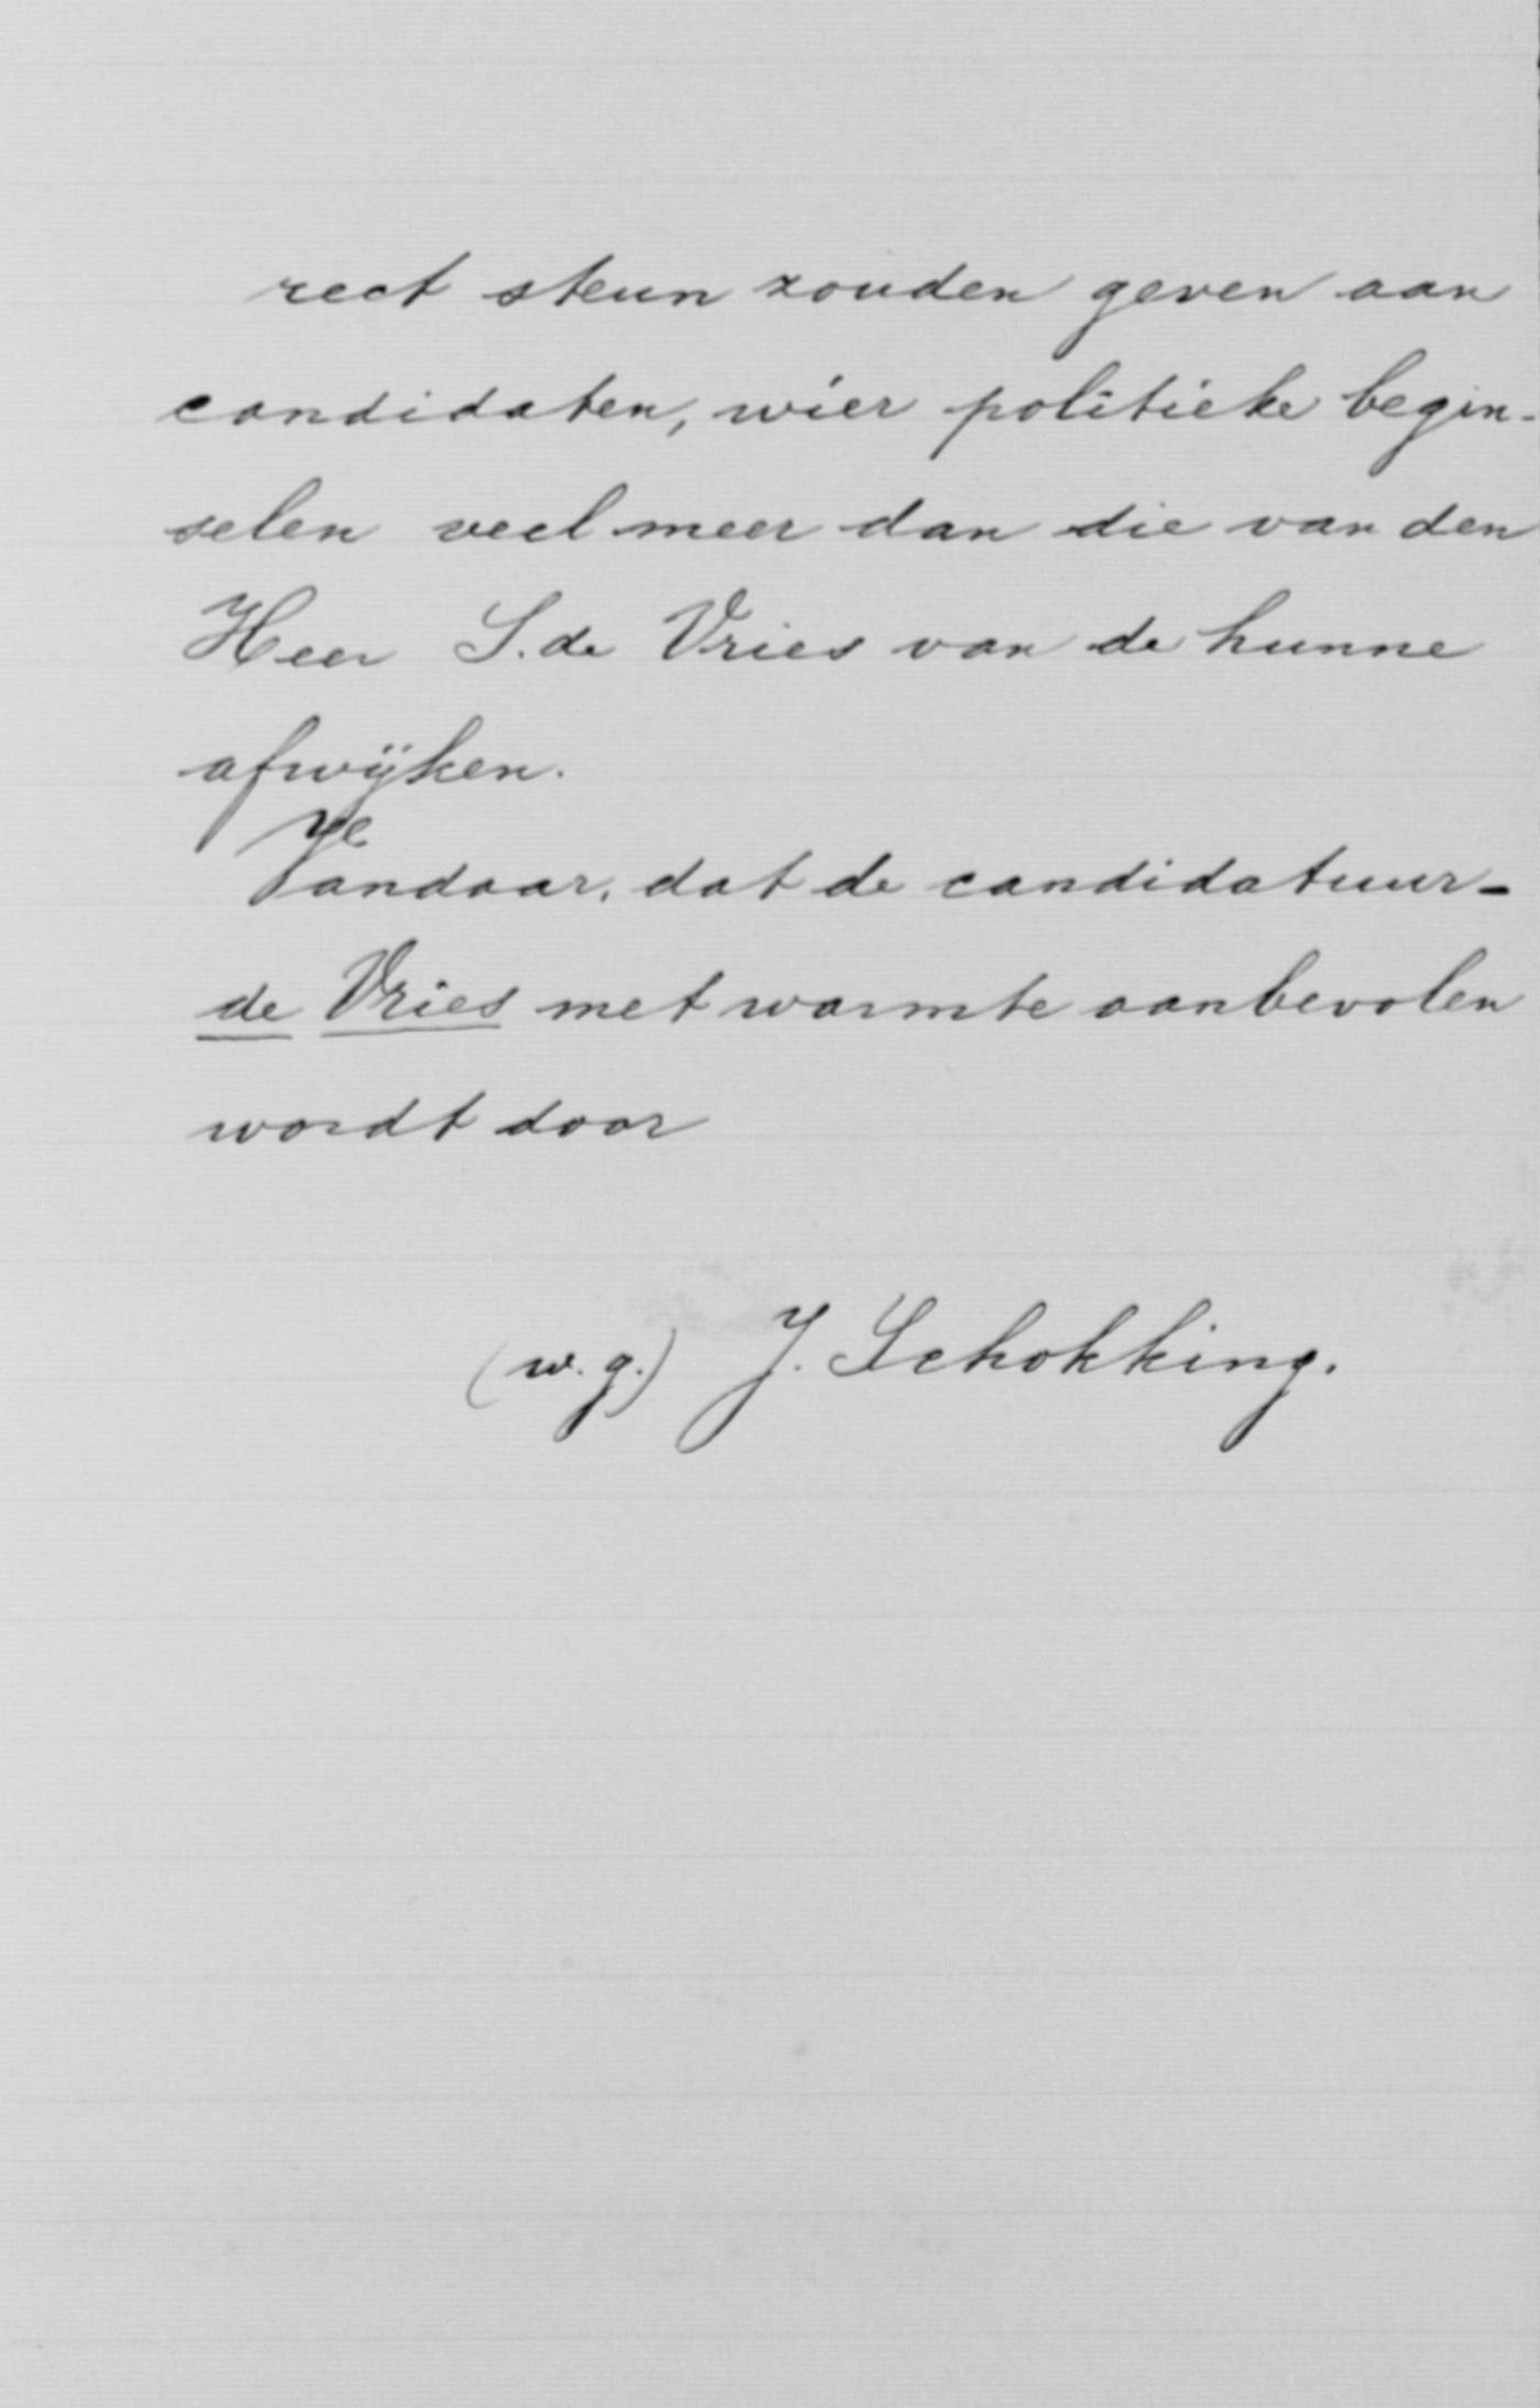 rect steun zouden geven aan
candidaten, wier politieke begin-
selen veel meer dan die van den
Heer S. de Vries van de hunne
afwijken.
Vandaar, dat de candidatuur-
de Vries met warmte aanbevolen
wordt door
(w.g.) J. Schokking.